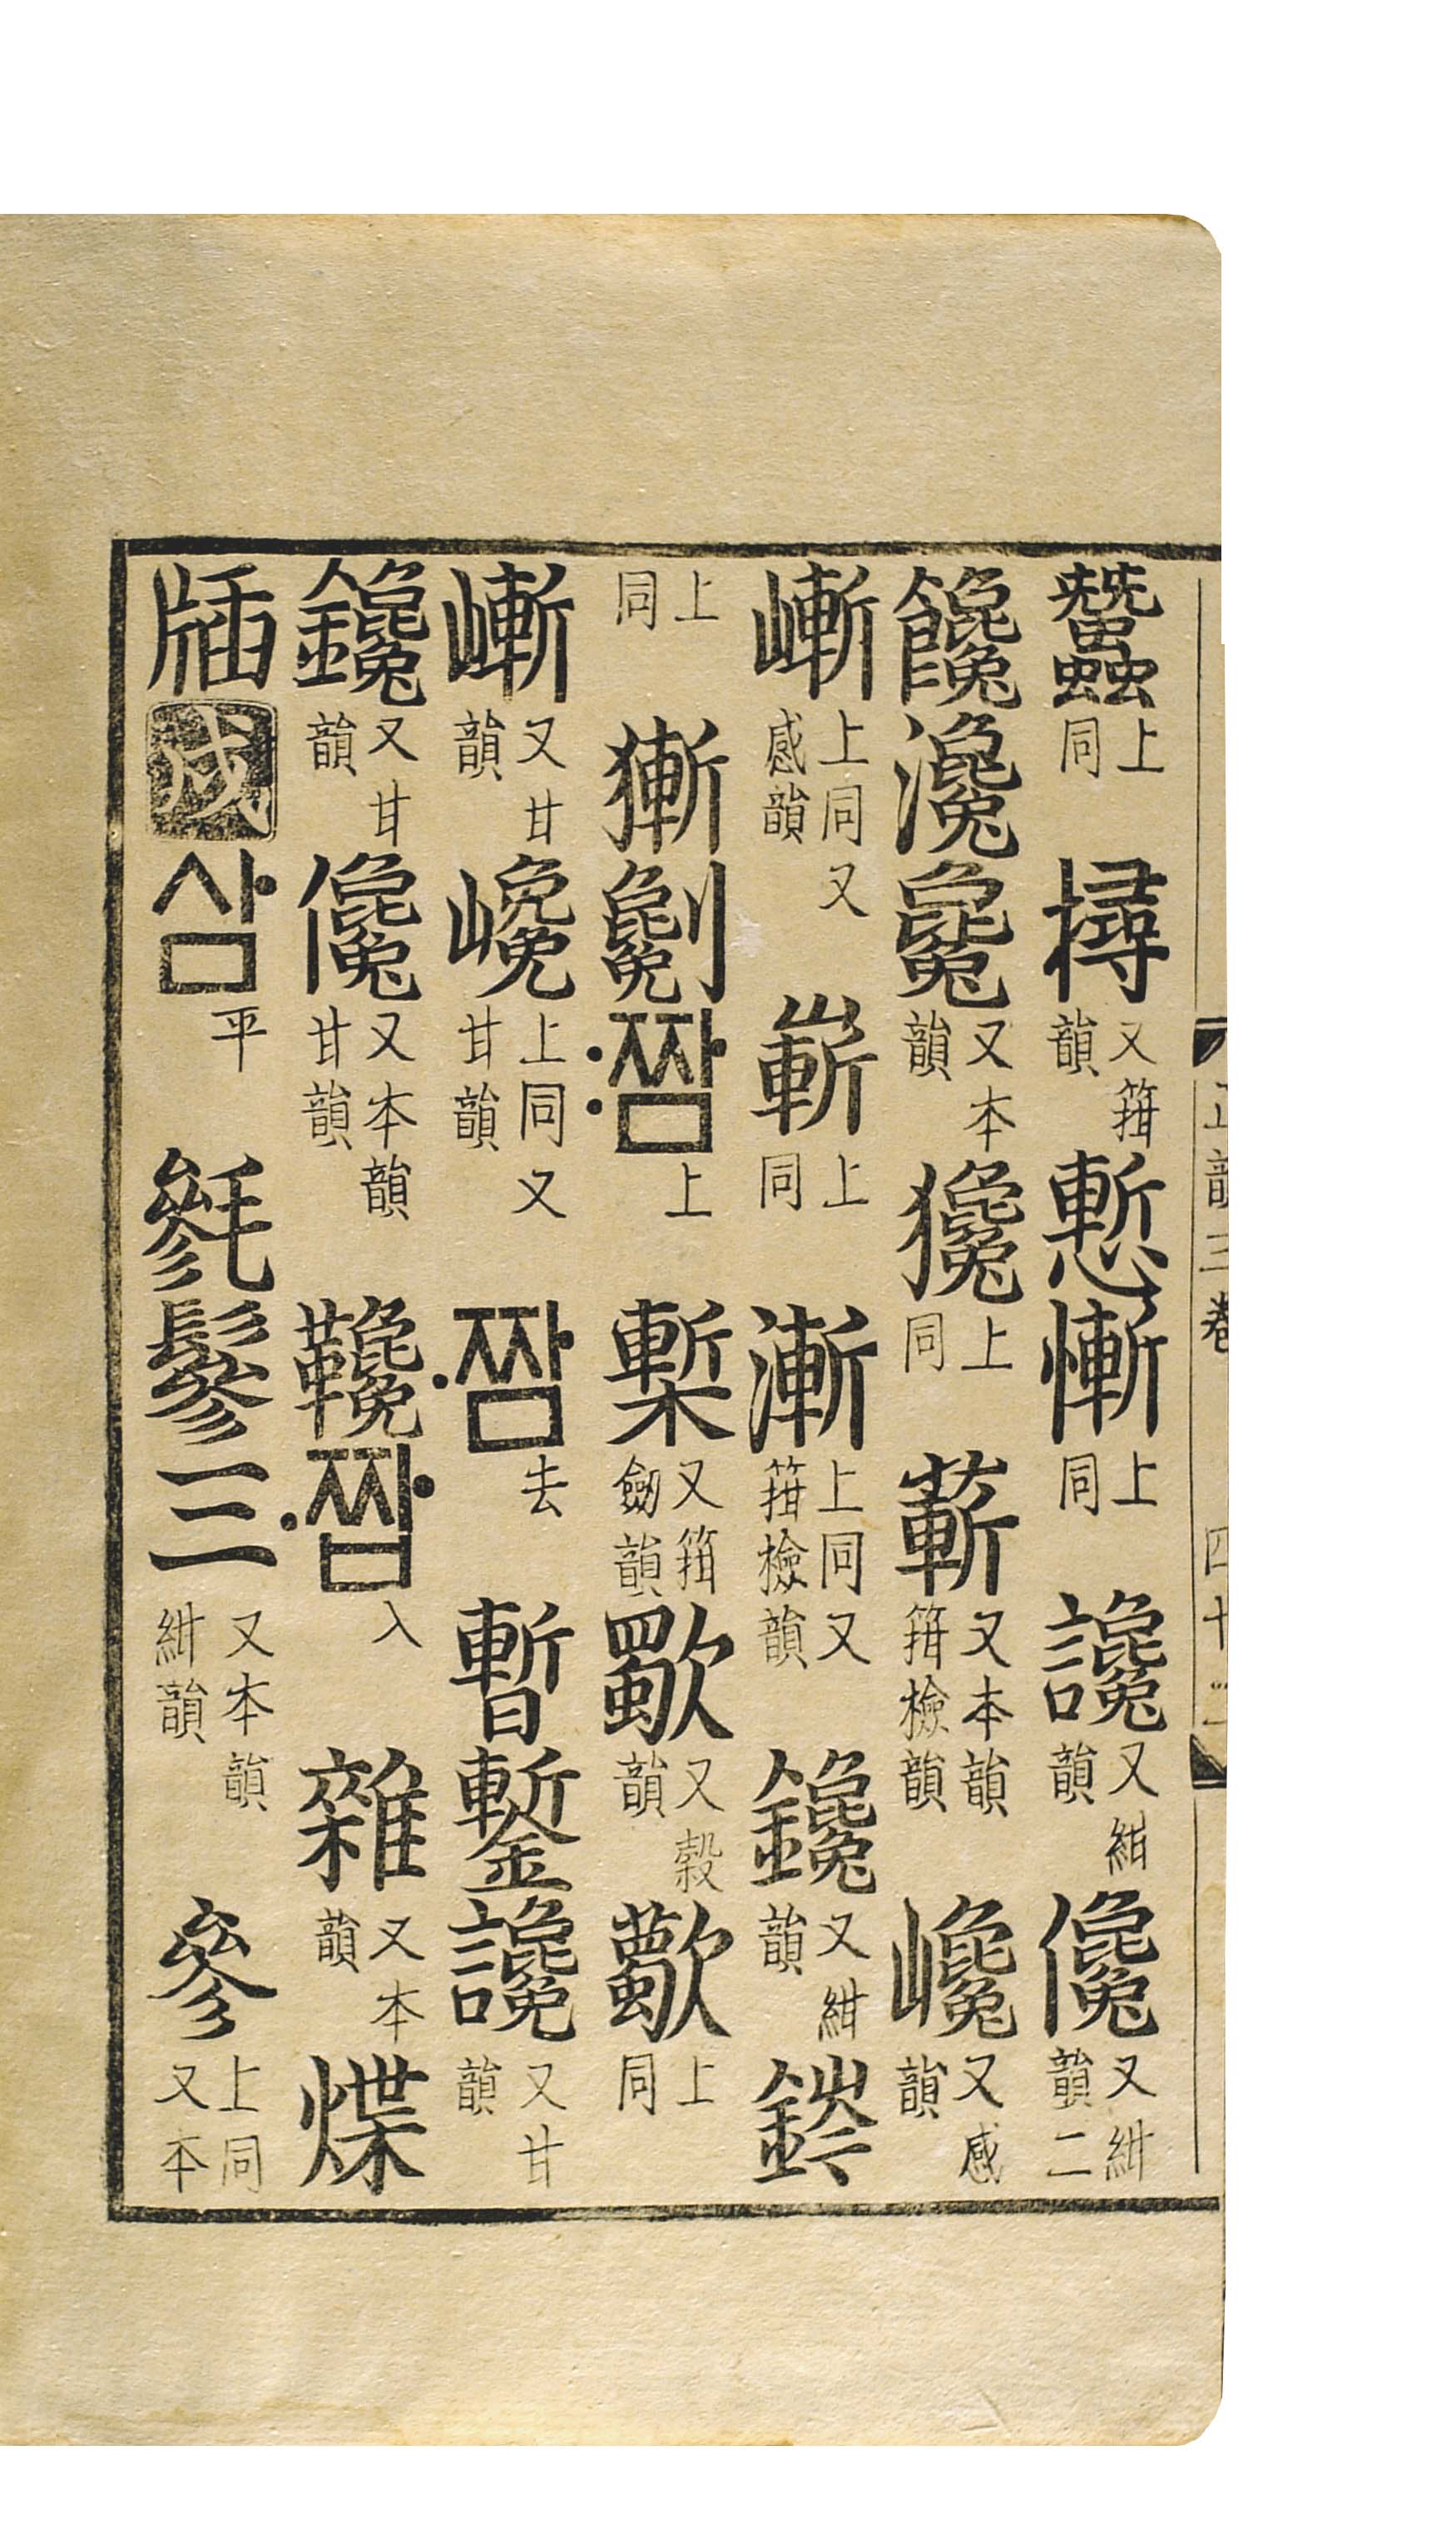 正韻三卷 四十
蠶上同樳又箝韻慙慚上同讒又紺韻儳又紺韻二
饞瀺毚又本韻上同蔪又本韻箝檢韻巉又感韻
嶃上同又感韻嶄上同漸上同又箝檢韻鑱又紺韻
上同獑劖:짬上槧又箝劒韻歜又穀韻上同
嶃又甘韻巉上同又甘韻·짬去暫鏨讒又甘韻
鑱又甘韻儳又本韻甘韻·짭入雜又本韻煠
牐戌삼平毿鬖三又本韻紺韻參上同又本